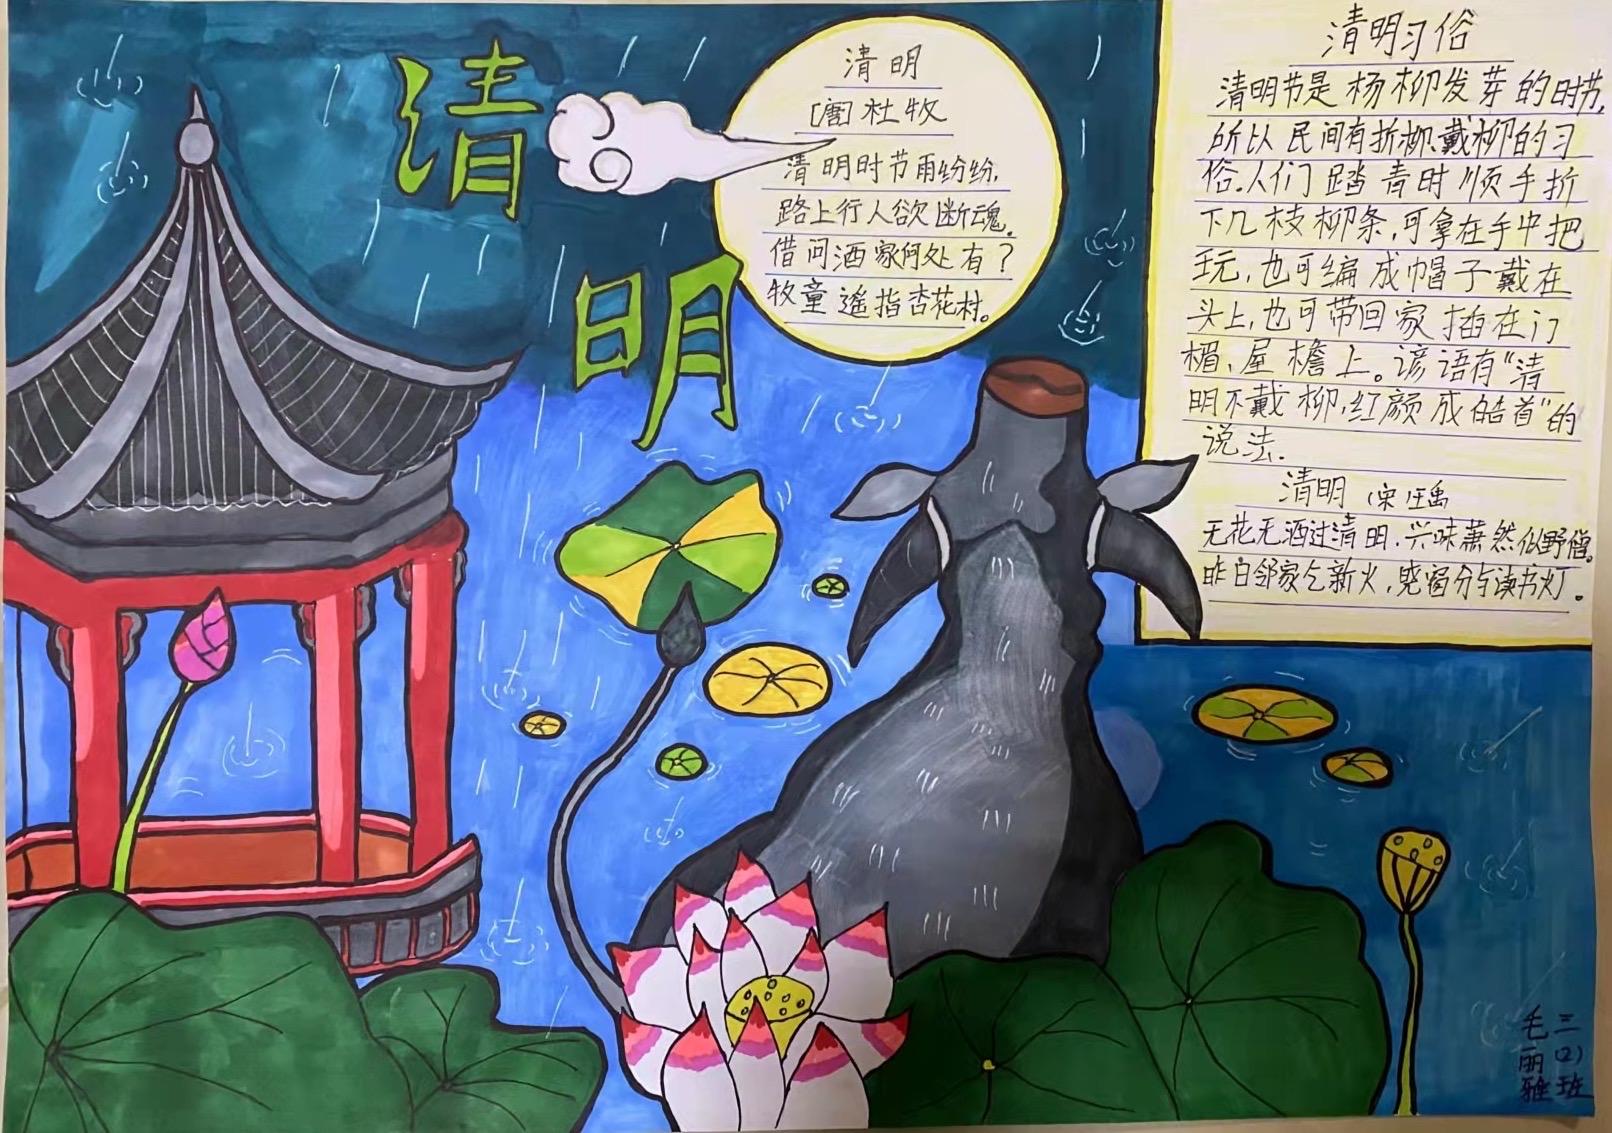 清
明
清明
[唐]杜牧
清明时节雨纷纷,
路上行人欲断魂。
借问酒家何处有?
牧童遥指杏花村。
清明习俗
清明节是杨柳发芽的时节,
所以民间有折柳、戴柳的习
俗.人们踏青时顺手折
下几枝柳条,可拿在手中把
玩,也可编成帽子戴在
头上,也可带回家插在门
楣、屋檐上。谚语有“清
明不戴柳,红颜成皓首”的
说法.
清明 (宋)王禹
无花无酒过清明.兴味萧然似野僧。
昨日邻家乞新火,晓窗分与读书灯。
三(2)班
毛丽雅